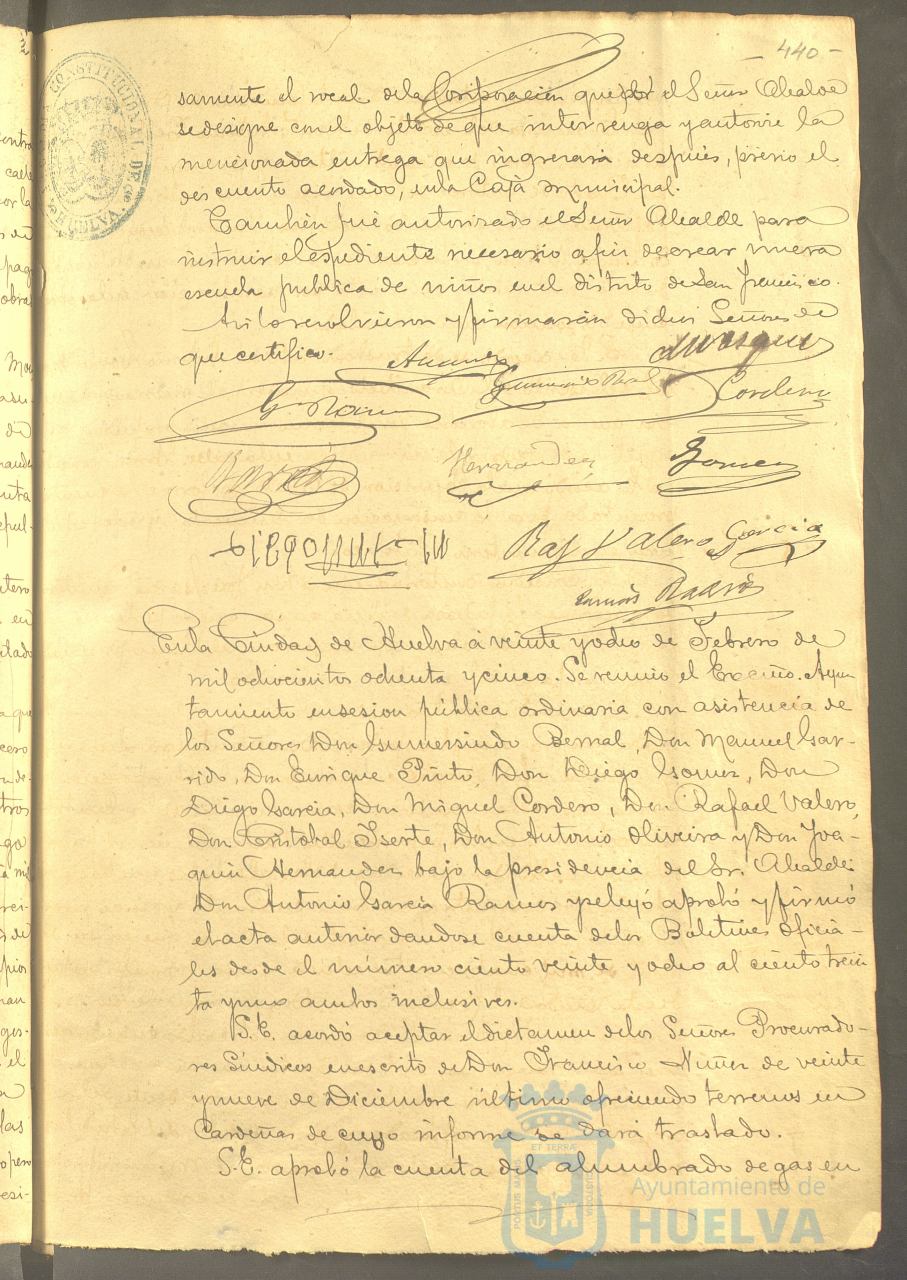 - 440 -
CONSTITUCIONAL DE
HUELVA
samente el vocal dela Corporacion que por el Señor Alcalde
se designe con el objeto de que intervenga y autorice la
mencionada entrega que ingresará despues, previo el
descuento acordado, en la Caja municipal.
Tambien fué autorizado el Señor Alcalde para
instruir el espediente necesario a fin de crear nueva
escuela publica de niños en el distrito de San Francisco.
Asi lo resolvieron y firmarán dichos Señores de
que certifico.
G. Ramos
Gumersindo Bernal
Cordero
Hernandez
Gomez
Raf Valero
Garcia
En la Ciudad de Huelva á veinte y ocho de Febrero de
mil ochocientos ochenta y cinco. Se reunió el Excmo. Ayun
tamiento en sesion pública ordinaria con asistencia de
los Señores Don Gumersindo Bernal, Don Manuel Gar-
rido, Don Enrique Pinto, Don Diego Gomez, Don
Diego Garcia, Don Miguel Cordero, Don Rafael Valero,
Don Cristobal Iserte, Don Antonio Oliveira y Don Joa-
quin Hernandez bajo la presidencia del Sr. Alcalde
Don Antonio Garcia Ramos y se leyó aprobó y firmó
el acta anterior dandose cuenta delos Boletines oficia-
les desde el número ciento veinte y ocho al ciento trein
ta y uno ambos inclusives.
S.E. acordó aceptar el dictamen delos Señores Procurado-
res Sindicos en escrito de Don Francisco Nuñez de veinte
y nueve de Diciembre último ofreciendo terrenos en
Cardeñas de cuyo informe se dará traslado.
S.E. aprobó la cuenta del alumbrado de gas en
Ayuntamiento de
HUELVA